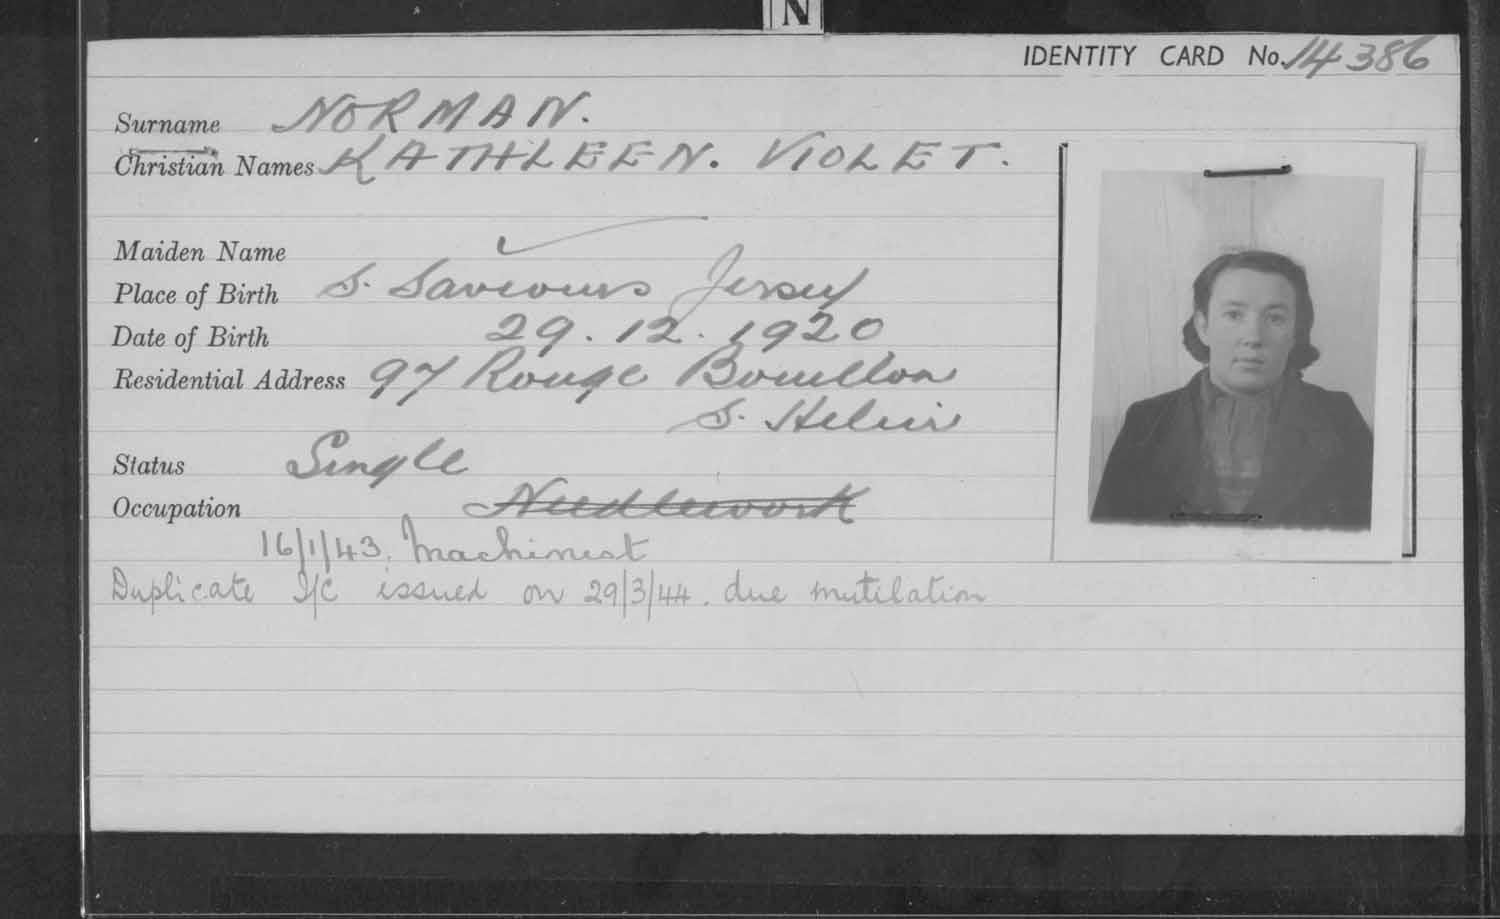 N
IDENTITY CARD No. 14386
Surname NORMAN.
Christian Names KATHLEEN. VIOLET.
Maiden Name
Place of Birth S. Saviours Jersey
Date of Birth 29.12.1920
Residential Address 97 Rouge Bouillon
S. Helier
Status Single
Occupation Needlework
16/1/43. Machinist
Duplicate I/C issued on 29/3/44. due mutilation